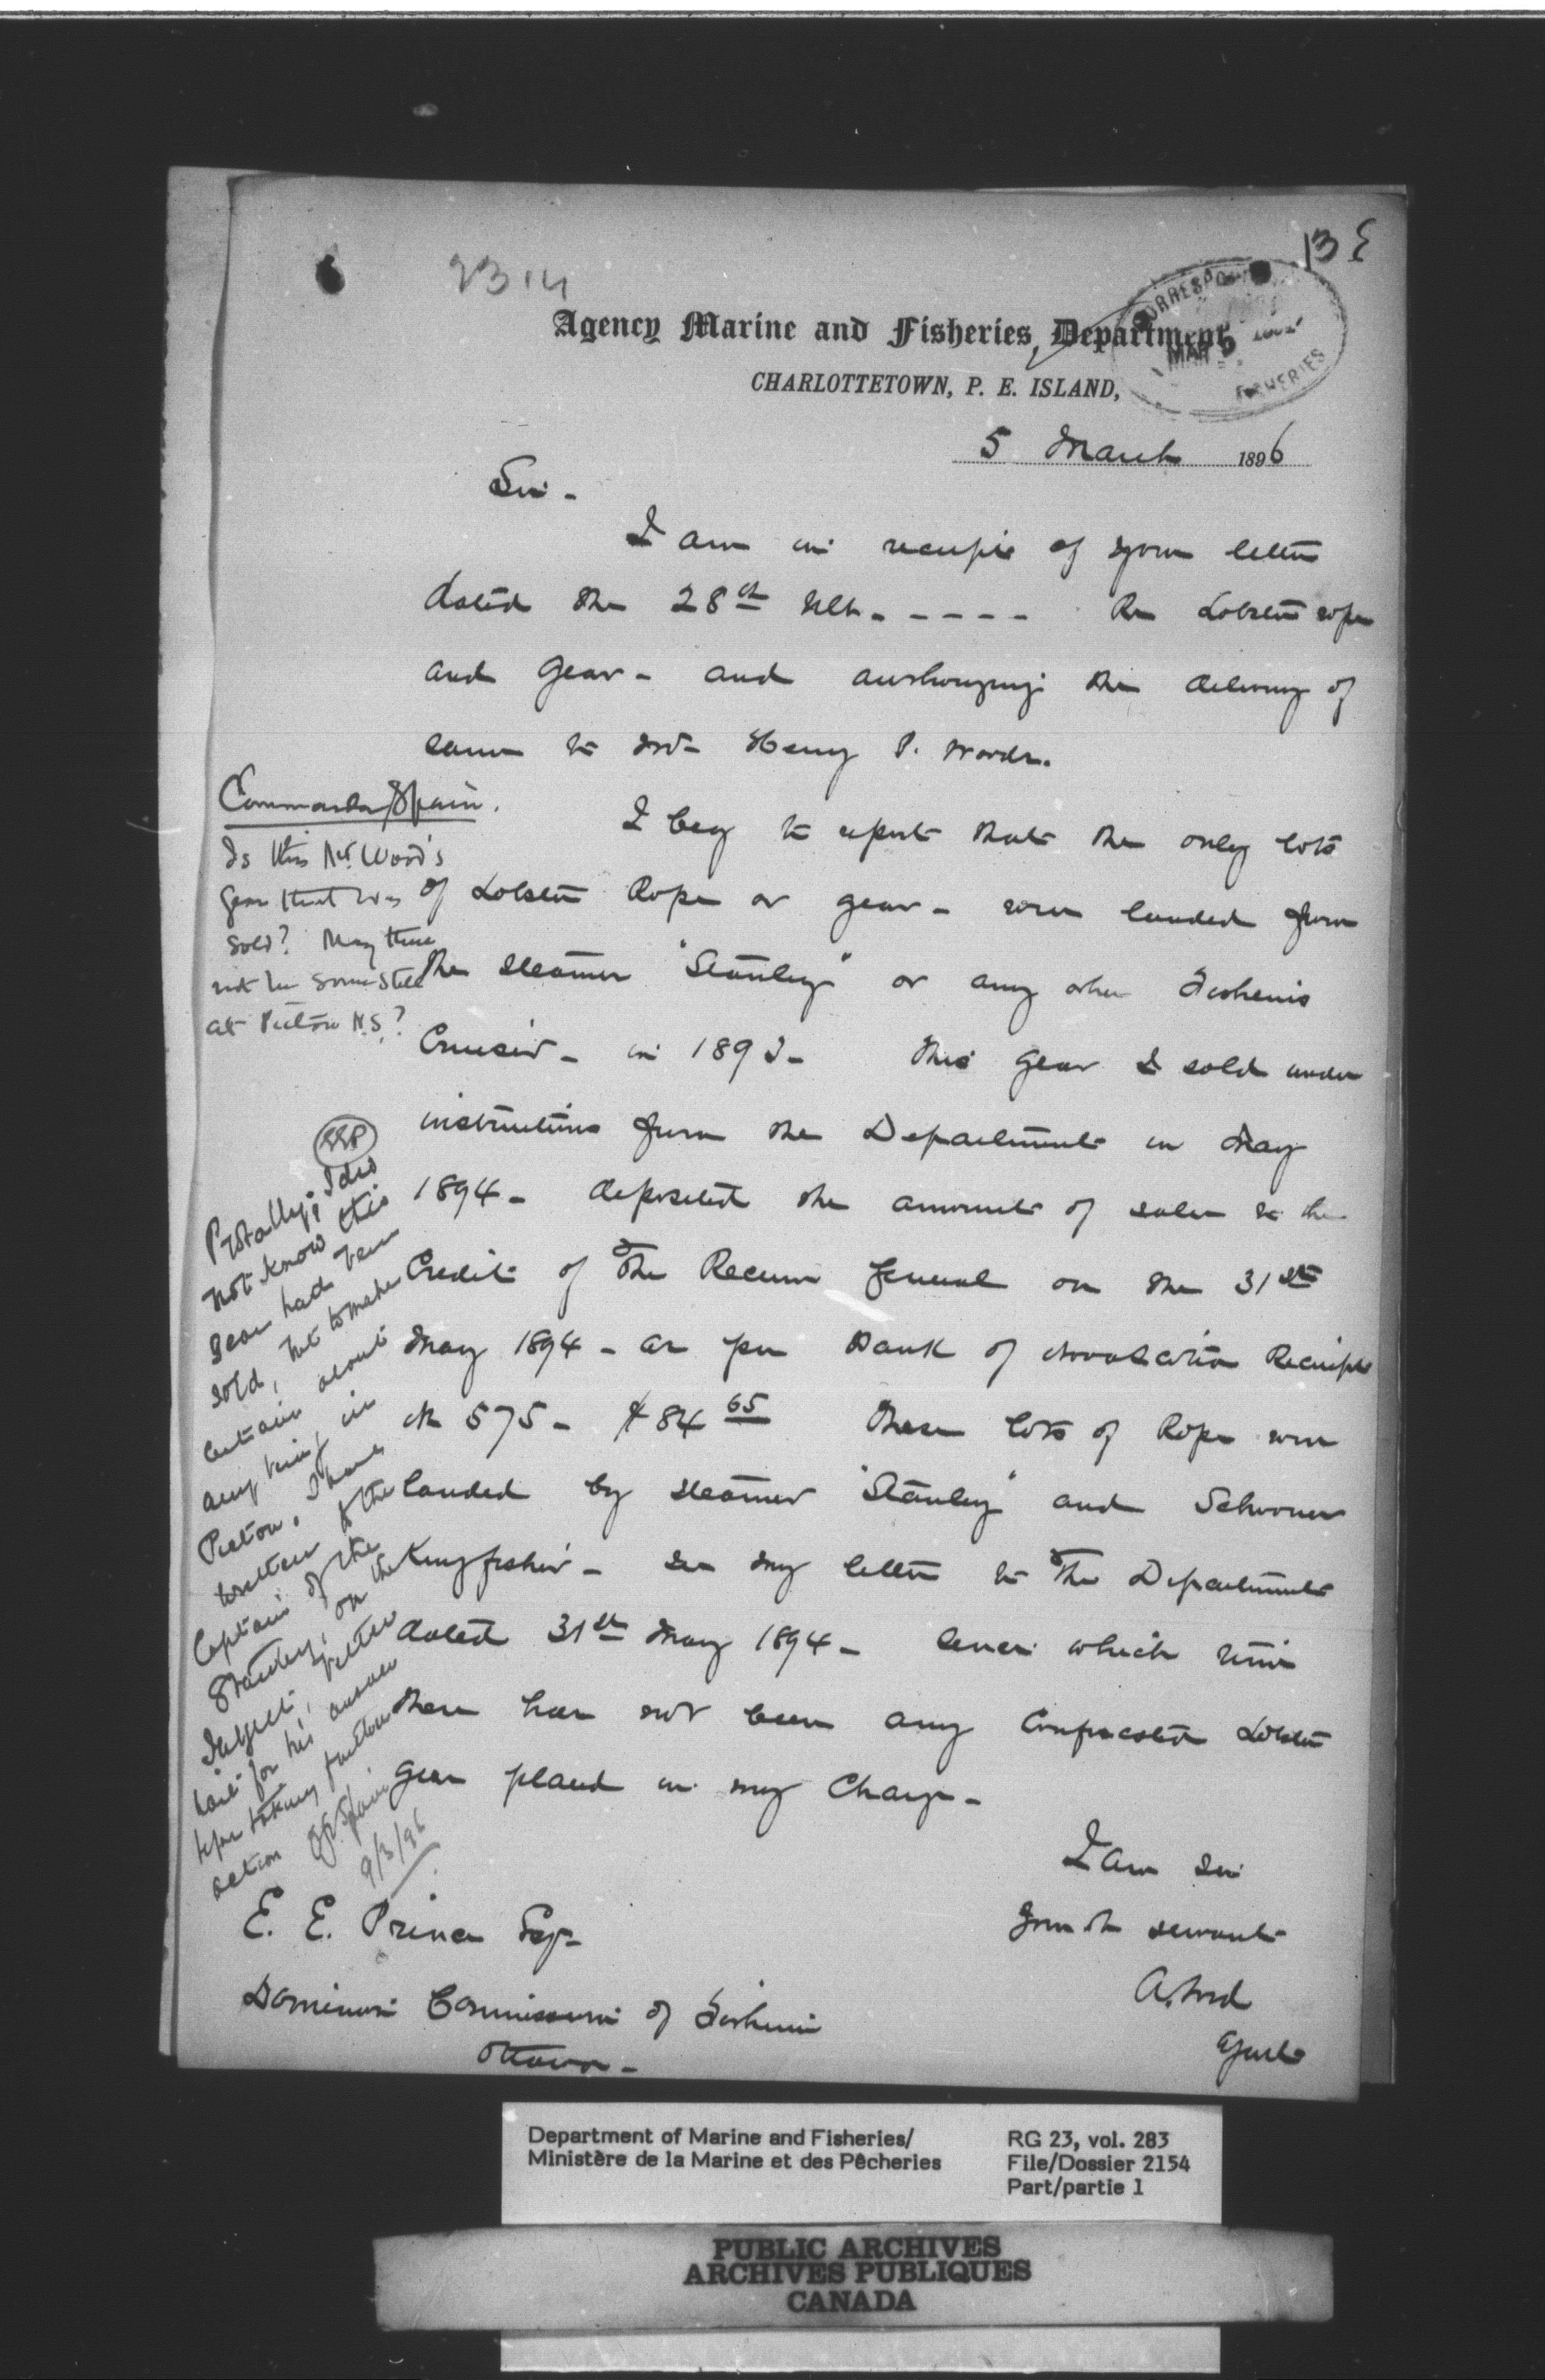 2314
13 E
CORRESPOND
MAR 9
FISHERIES
Agency Marine and Fisheries, Department,
CHARLOTTETOWN, P. E. ISLAND,
5 March 1896
Sir -
I am in receipt of your letter
dated the 28th Ult. - - - - - Re Lobster rope
and Gear - and authorizing the delivery of
same to Mr Henry P. Woods.
I beg to report that the only lots
of Lobster Rope or gear - were landed from
the Steamer "Stanley" or any other Fisheries
Cruiser - in 1893 - This gear I sold under
instructions from the Department in May
1894 - deposited the amount of sales to the
Credit of The Receiver General on the 31st
May 1894 - as per Bank of Nova Scotia Receipt
No 575 - $84 65 These lots of Rope were
landed by steamer "Stanley" and Schooner
Kingfisher - see my letter to The Department
dated 31st May 1894 - since which time
there has not been any Confiscated Lobster
Gear placed in my Charge -
I am Sir
Your Ob servant
A. Lord
Agent
E. E. Prince Esq -
Dominion Commissioner of Fisheries
Ottawa -
Commander Spain.
Is this Mr. Wood's
gear that was
sold? May there
not be some still
at Pictou N.S.?
EEP
Probably; I did
not know this
gear had been
sold, but to make
certain about
any being in
Pictou, I have
written to the
Captain of the
Stanley, on the
subject, better
wait for his answer
before taking further
action OGV Spain
9/3/96
Department of Marine and Fisheries/
Ministère de la Marine et des Pêcheries
RG 23, vol. 283
File/Dossier 2154
Part/partie 1
PUBLIC ARCHIVES
ARCHIVES PUBLIQUES
CANADA